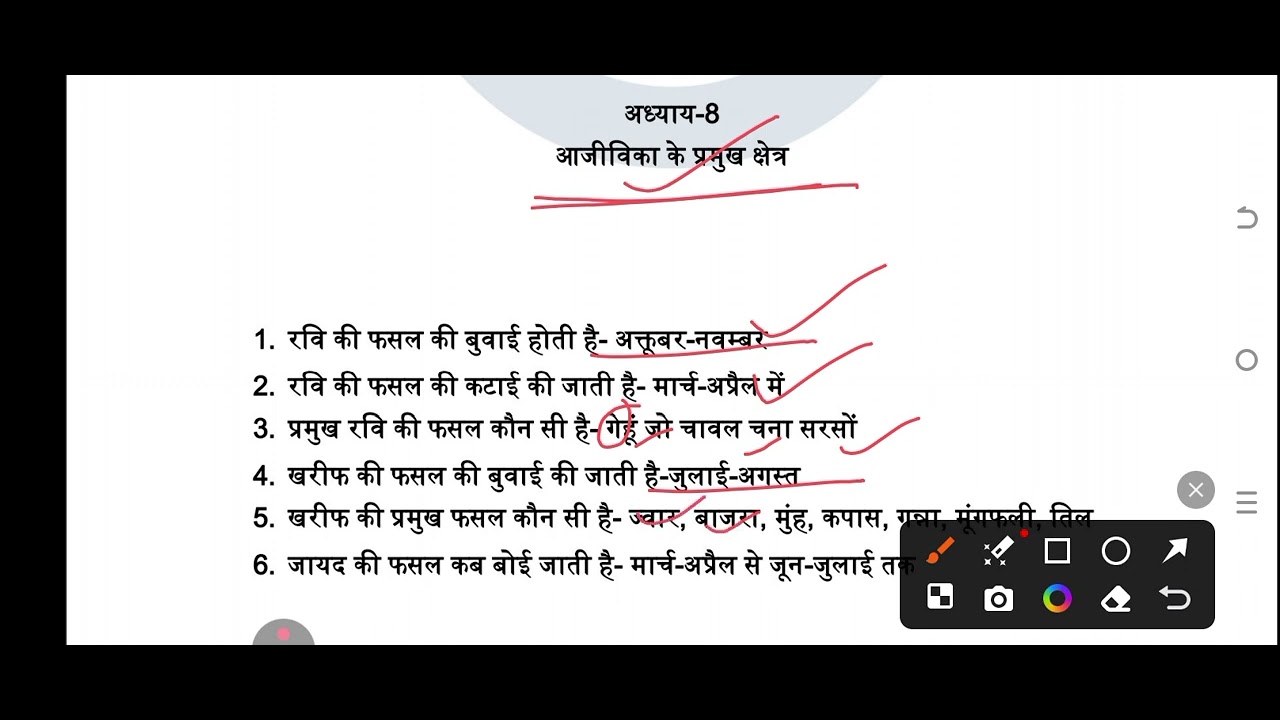 अध्याय-8
आजीविका के प्रमुख क्षेत्र
1. रवि की फसल की बुवाई होती है- अक्तूबर-नवम्बर
2. रवि की फसल की कटाई की जाती है- मार्च-अप्रैल में
3. प्रमुख रवि की फसल कौन सी है- गेहूं जो चावल चना सरसों
4. खरीफ की फसल की बुवाई की जाती है-जुलाई-अगस्त
5. खरीफ की प्रमुख फसल कौन सी है- ज्वार, बाजरा, मुंह, कपास, गन्ना, मूंगफली, तिल
6. जायद की फसल कब बोई जाती है- मार्च-अप्रैल से जून-जुलाई तक